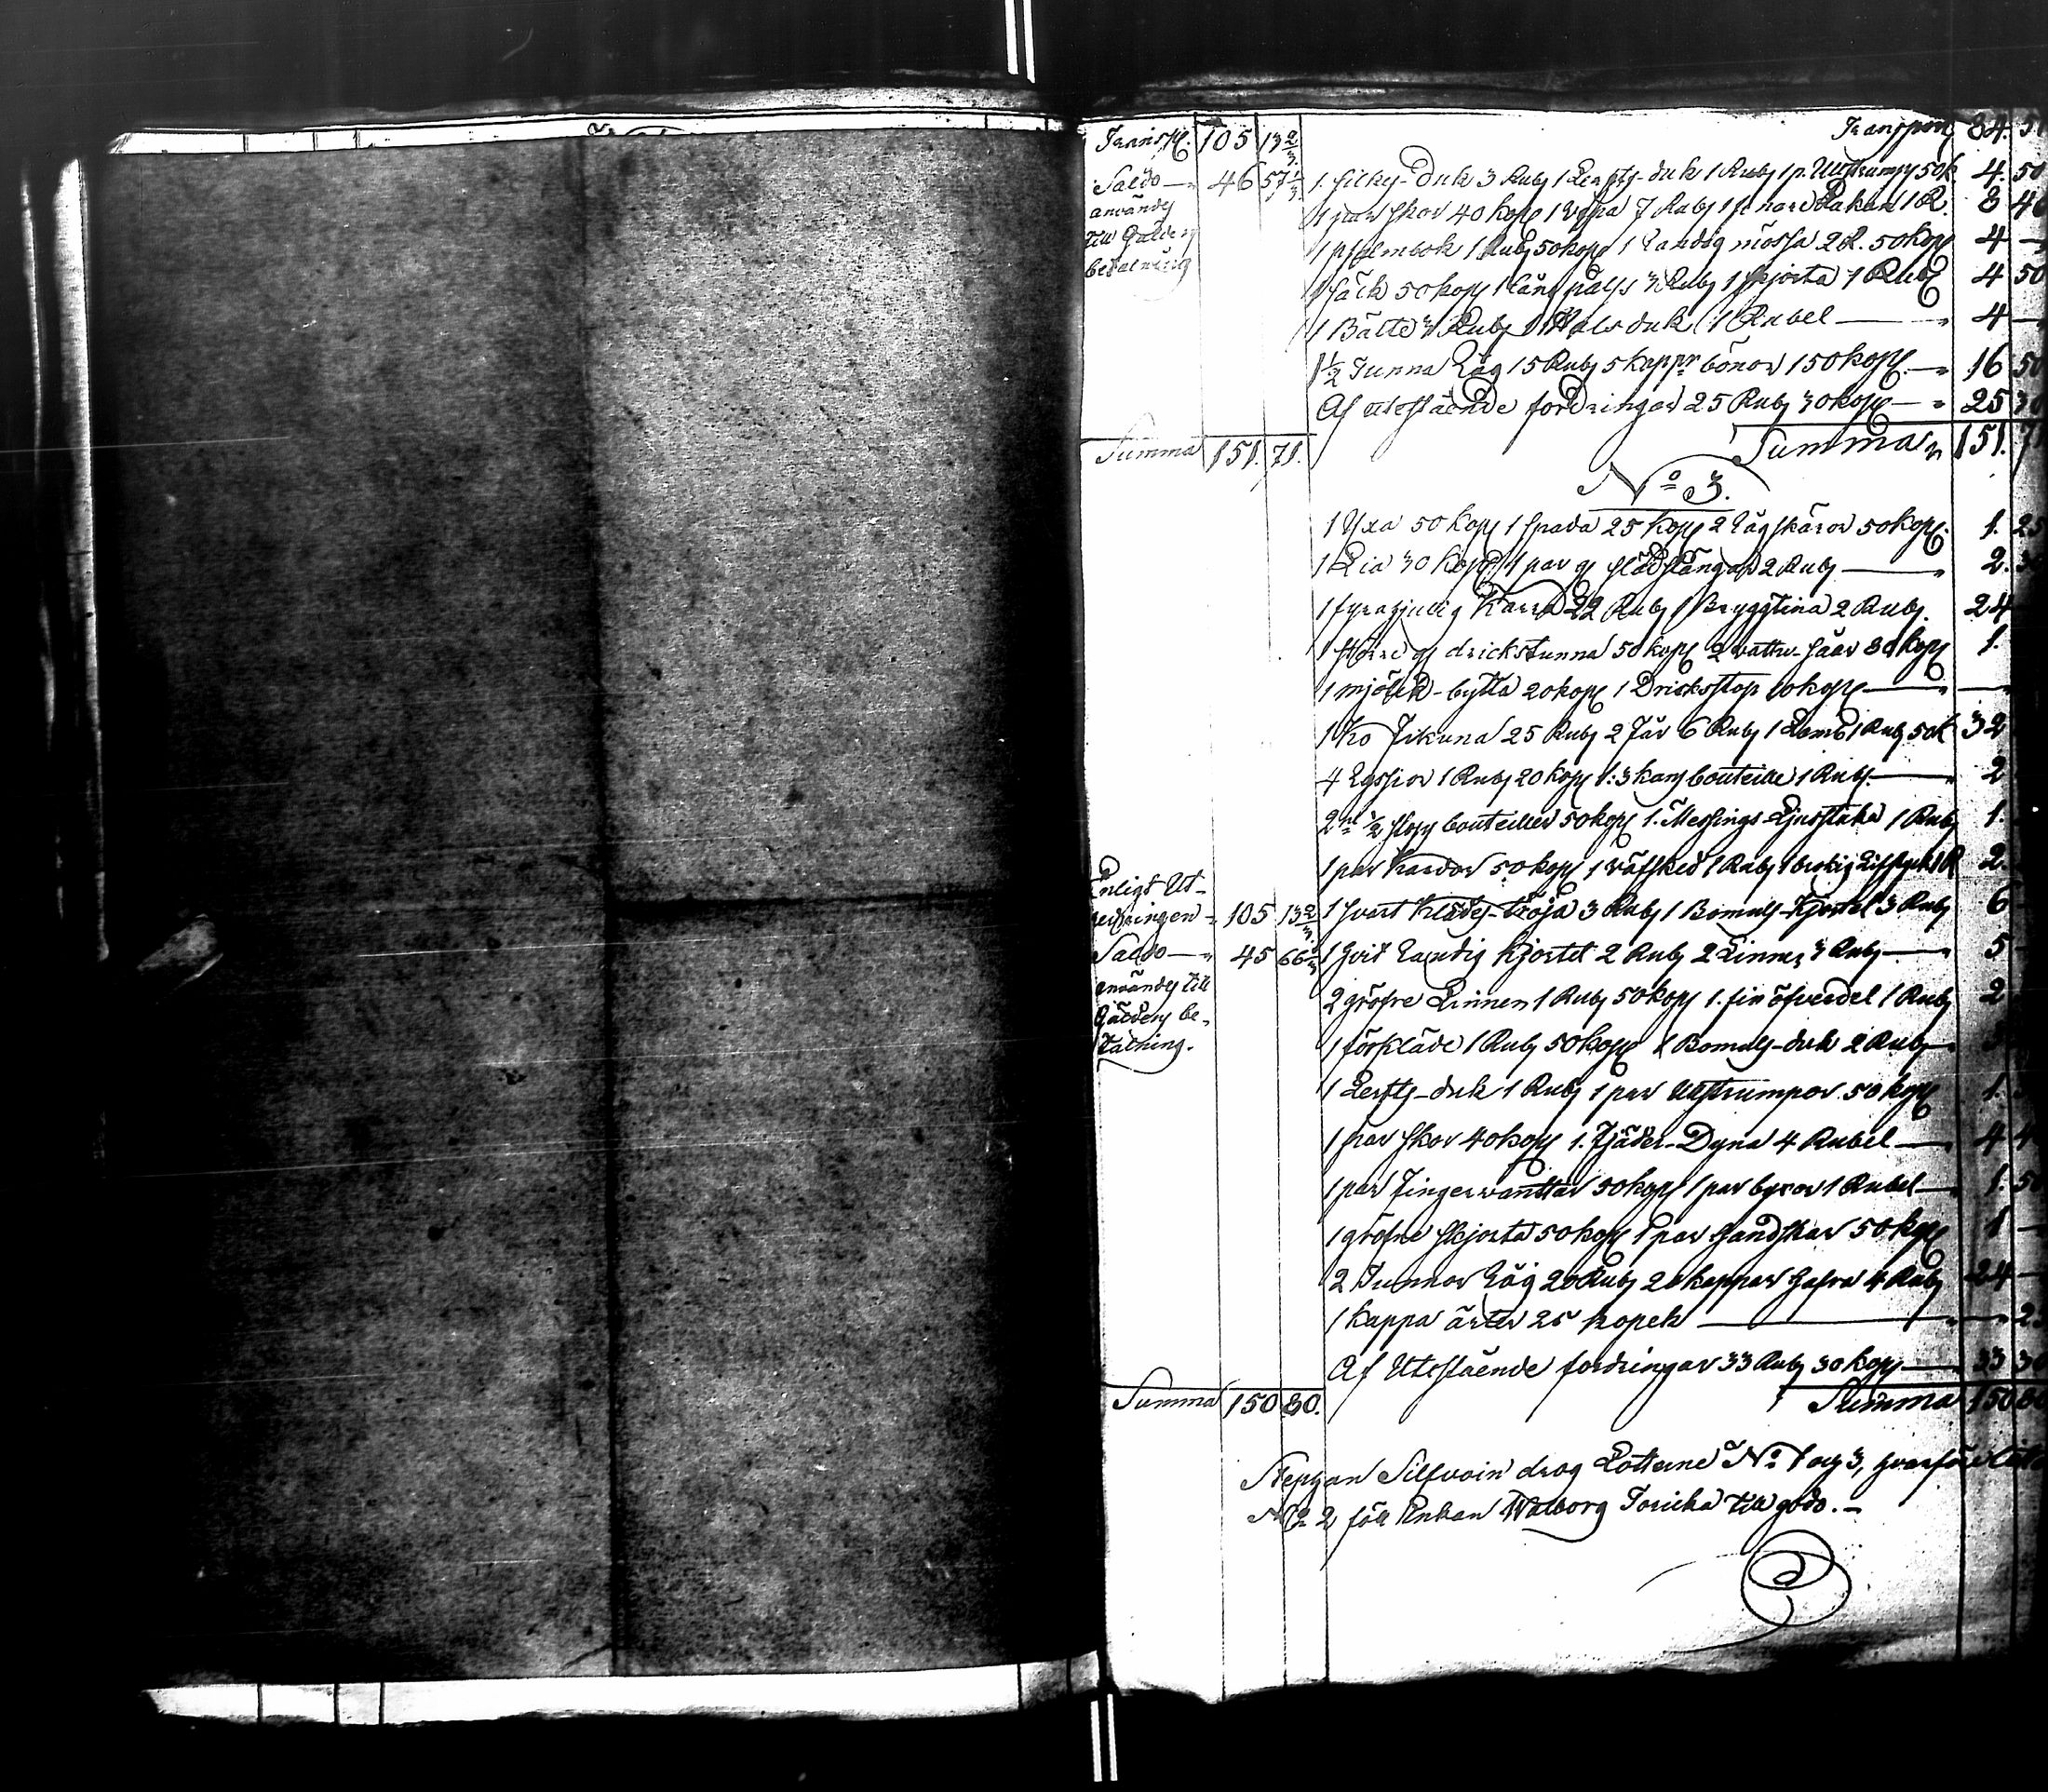 Transp. 105 13 2/3. Transport 84. 51
Saldo — 46 57 1/3. 1 silkes-duk 3 Rub 1 Lerfts-duk 1 Rub 1 p. Ullstrumpr 50 k. 4. 50
användes 1 par skor 40 kop 1 1 R. 8 40
till Gäldens 1 psalmbok 1 Rub 50 kop 1 randig mössa 2 R. 50 kop 4 —
betalning 1 säck 50 kop 1 3 Rub 1 skjorta 1 Rub 4 50
1 Bälte 3 Rub 1 Halsduk 1 Rubel — 4 —
1 1/2 Tunna Råg 15 Rub 5 kappr bönor 150 kop — 16 50
Af utestående fordringar 25 Rub 30 kop — 25 30
Summa 151. 71. Summa 151. 71
No 3.
1 Yxa 50 kop 1 spada 25 kop 2 Råg skäror 50 kop. 1. 25
1 Lia 30 kop 1 par g 2 Rub — 2. 30
1 fyragjulig Kärra 22 Rub 1 Bryggtina 2 Rub. 24
1 större g drickstunna 50 kop 2 vattu-såar 80 kop 1.
1 mjölk-bytta 20 kop 1 Dricksstop 10 kop — —
1 Ko Fikuna 25 Rub 2 Får 6 Rub 1 Lamb 1 Rub 50 k 32
4 1 Rub 20 kop 1. 3 kans bouteille 1 Rub — 2
2 1/2 stops bouteiller 50 kop 1. Messings Ljusstaka 1 Rub 1.
1 par Kardor 50 kop 1 väfsked 1 Rub 1 brokig Lifstycke 1 R 2.
Enligt Ut-
räkningen 105 13 2/3. 1 svart Klädes-tröja 3 Rub 1 Bomulls-Kjortel 3 Rub 6 —
Saldo — 45 66 1/3 1 hvit Randig Kjortel 2 Rub 2 Linner 3 Rub — 5 —
användes till 2 gröfre Linnen 1 Rub 50 kop 1. fin öfverdel 1 Rub 2
Gäldens be- 1 förkläde 1 Rub 50 kop 1 Bomulls-duk 2 Rub — 3
talning. 1 Lerfts-duk 1 Rub 1 par Ullstrumpor 50 kop 1.
1 par skor 40 kop 1. Fjäder-Dyna 4 Rubel — 4 4
1 par Fingervanttar 50 kop 1 par byxor 1 Rubel — 1. 50
1 gröfre skjorta 50 kop 1 par handskar 50 kop 1 —
2 Tunnor Råg 20 Rub 20 kappar hafra 4 Rub 24 —
1 kappa ärter 25 kopek — — 2
Af Utestående fordringar 33 Rub 30 kop — 33 30
Summa 150 80. Summa 150 80
Stephan Silfvoin drog Lotterne No 1 och 3, hvarföre
No 2 föll Enkan Walborg Toricka till godo. —